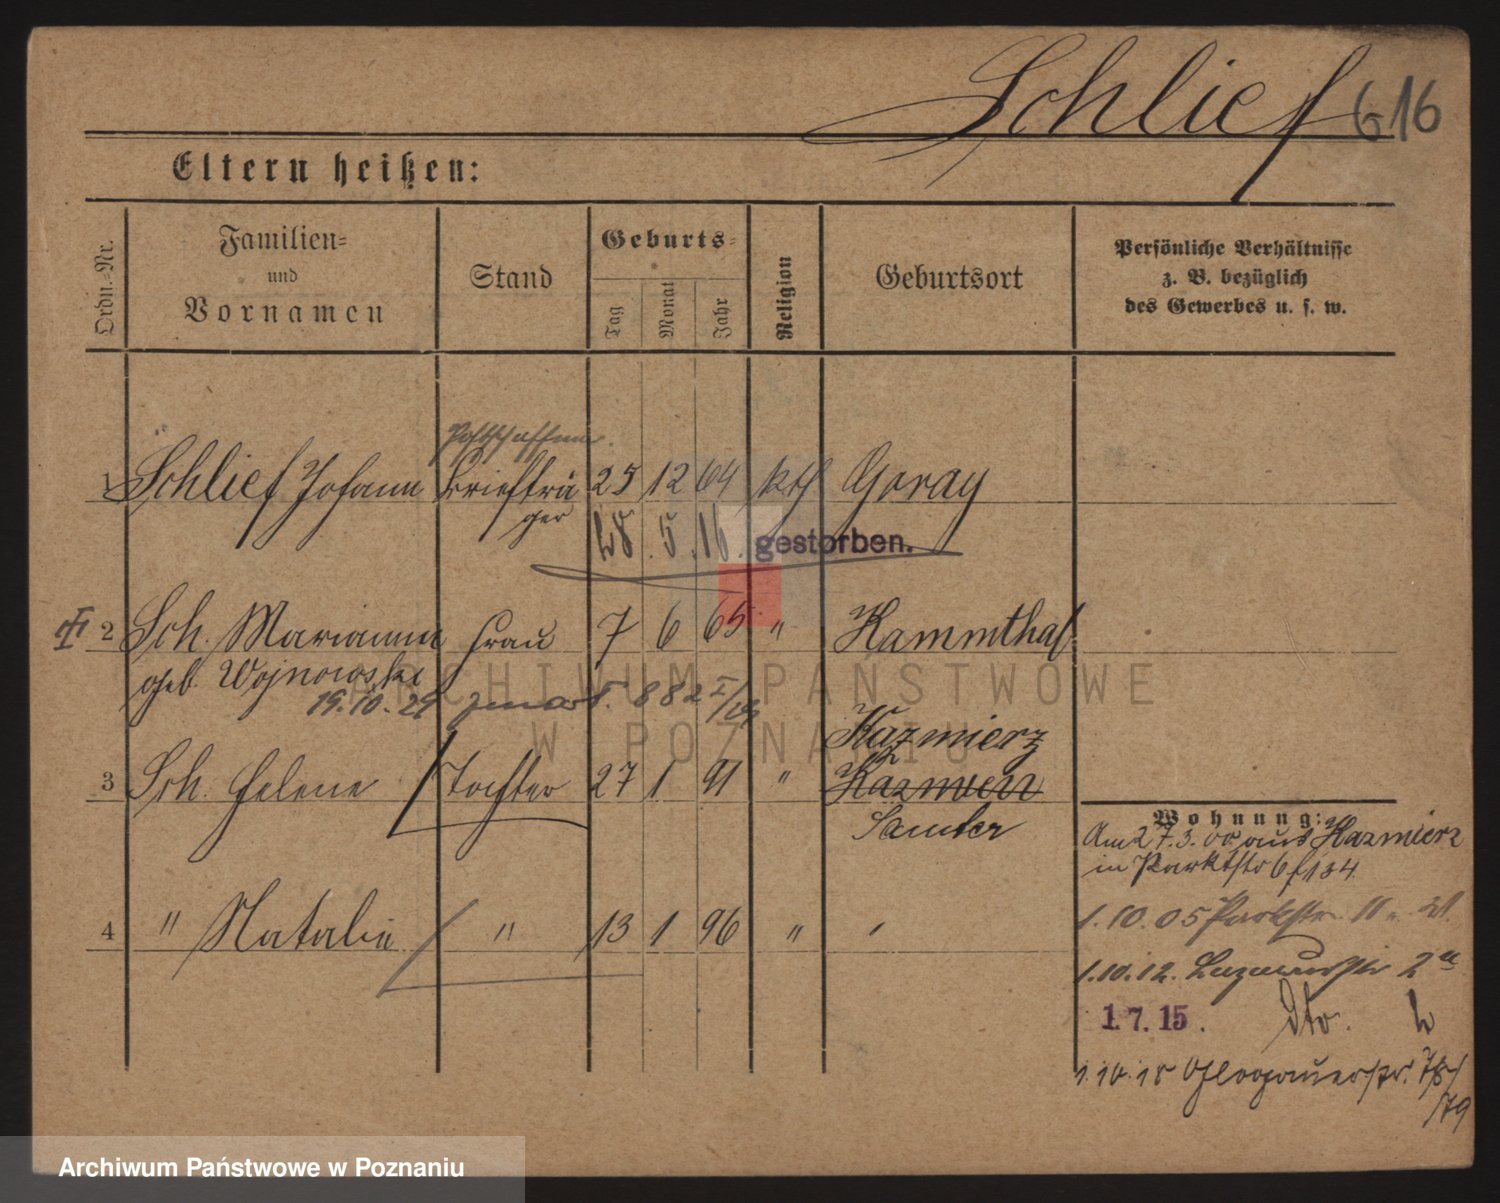 Schlief 616
Eltern heißen:
Ordn.-Nr.
Familien-
und
Vornamen
Stand
Geburts-
Tag
Monat
Jahr
Religion
Geburtsort
Persönliche Verhältnisse
z. B. bezüglich
des Gewerbes u. s. w.
Postschaffner.
1 Schlief Johann Briefträ 25 12 64 kth Goray
ger
28. 5. 16. gestorben.
2 Sch. Marianna Frau 7 6 65 " Kammthal
geb. Wojnowska
19.10.29 882
Kazmierz
3 Sch. Helene Tochter 27 1 91 " Kazmierz
Samter
4 " Natalie " 13 1 96 "
Wohnung:
Am 27.3.00 aus Kazmierz
in Parkstr 6 134
1.10.05 Parkstr. 11
1.10.12. Lazarusstr 2a
1.7.15. dto.
1.10.18 Glogauerstr.
79
ARCHIWUM PAŃSTWOWE
W POZNANIU
Archiwum Państwowe w Poznaniu